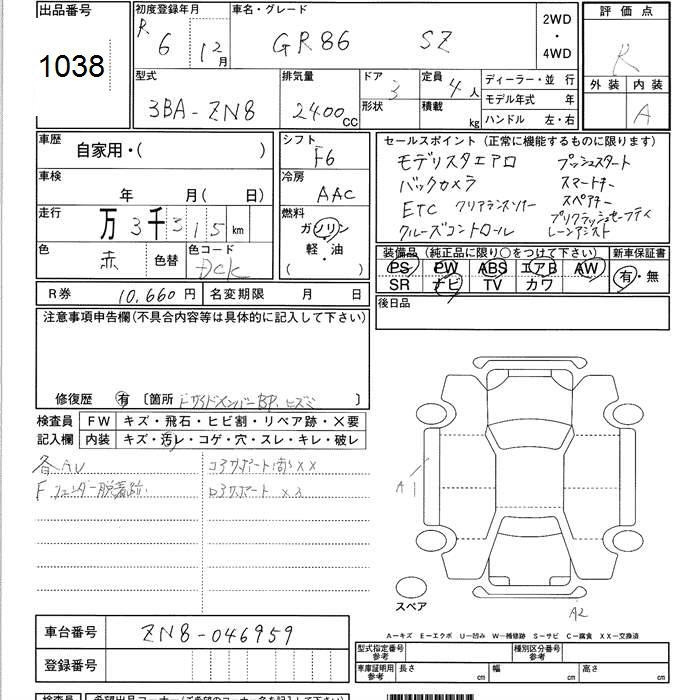 出品番号
1038
初度登録年月
R 6 12月
車名・グレード
GR86 SZ
2WD
・
4WD
評価点
R
外装 内装
A
型式
3BA-ZN8
排気量
2400cc
ドア 3
形状
定員 4人
積載 kg
ディーラー・並 行
モデル年式 年
ハンドル 左・右
車歴
自家用・( )
車検
年 月( 日)
走行
万 3千315km
色
赤
色替
色コード
DCK
シフト
F6
冷房
AAC
燃料
ガソリン
軽・油
( )
セールスポイント(正常に機能するものに限ります)
モデリスタエアロ プッシュスタート
バックカメラ スマートキー
ETC クリアランスソナー スペアキー
クルーズコントロール プリクラッシュセーフティ
レーンアシスト
装備品(純正品に限り○をつけて下さい)
PS PW ABS エアB AW
SR ナビ TV カワ
新車保証書
有・無
R券 10,660円
名変期限 月 日
後日品
注意事項申告欄(不具合内容等は具体的に記入して下さい)
修復歴 有 〔箇所 FサイドメンバーBP.ヒズミ 〕
検査員
記入欄
FW キズ・飛石・ヒビ割・リペア跡・X要
内装 キズ・汚レ・コゲ・穴・スレ・キレ・破レ
各AU
Fフェンダー脱着跡
コアサポート XX
ロアサポート XX
A1
A2
スペア
A-キズ E-エクボ U-凹み W-補修跡 S-サビ C-腐食 XX-交換済
車台番号 ZN8-046959
登録番号
型式指定番号
参考
種別区分番号
参考
車庫証明用
参考
長さ cm
幅 cm
高さ cm
検査員
希望出品コーナー(ご希望のコーナー名を記入下さい)